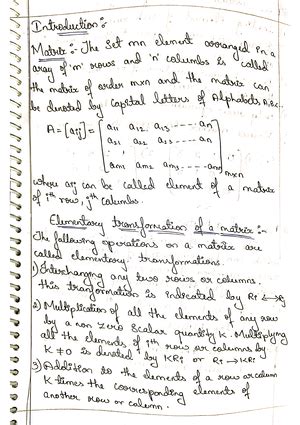 Introduction:-
Matrix:- The Set mn element arranged in a
array of 'm' rows and 'n' columbs is called
the matrix of order mxn and the matrix can
be denoted by Capital letters of Alphabets A,B,C..
A = [aij] = [ a11 a12 a13 ---- an
a21 a22 a23 ---- an
am1 am2 am3 ---- an ] mxn
where aij can be called element of a matrix
of ith row, jth columbs.
Elementary transformation of a matrix:-
The following operations on a matrix are
called elementary transformations.
1) Interchanging any two rows or columns.
this tranformation is indicated by Ri ↔ Rj
2) Multiplication of all the elements of any row
by a non zero Scalar quantity K. Multiplying
all the elements of ith row or columbs by
K ≠ 0 is denoted by KRi or Ri → KRi
3) Addition to the elements of a row or column
K times the corresponding elements of
another row or column.